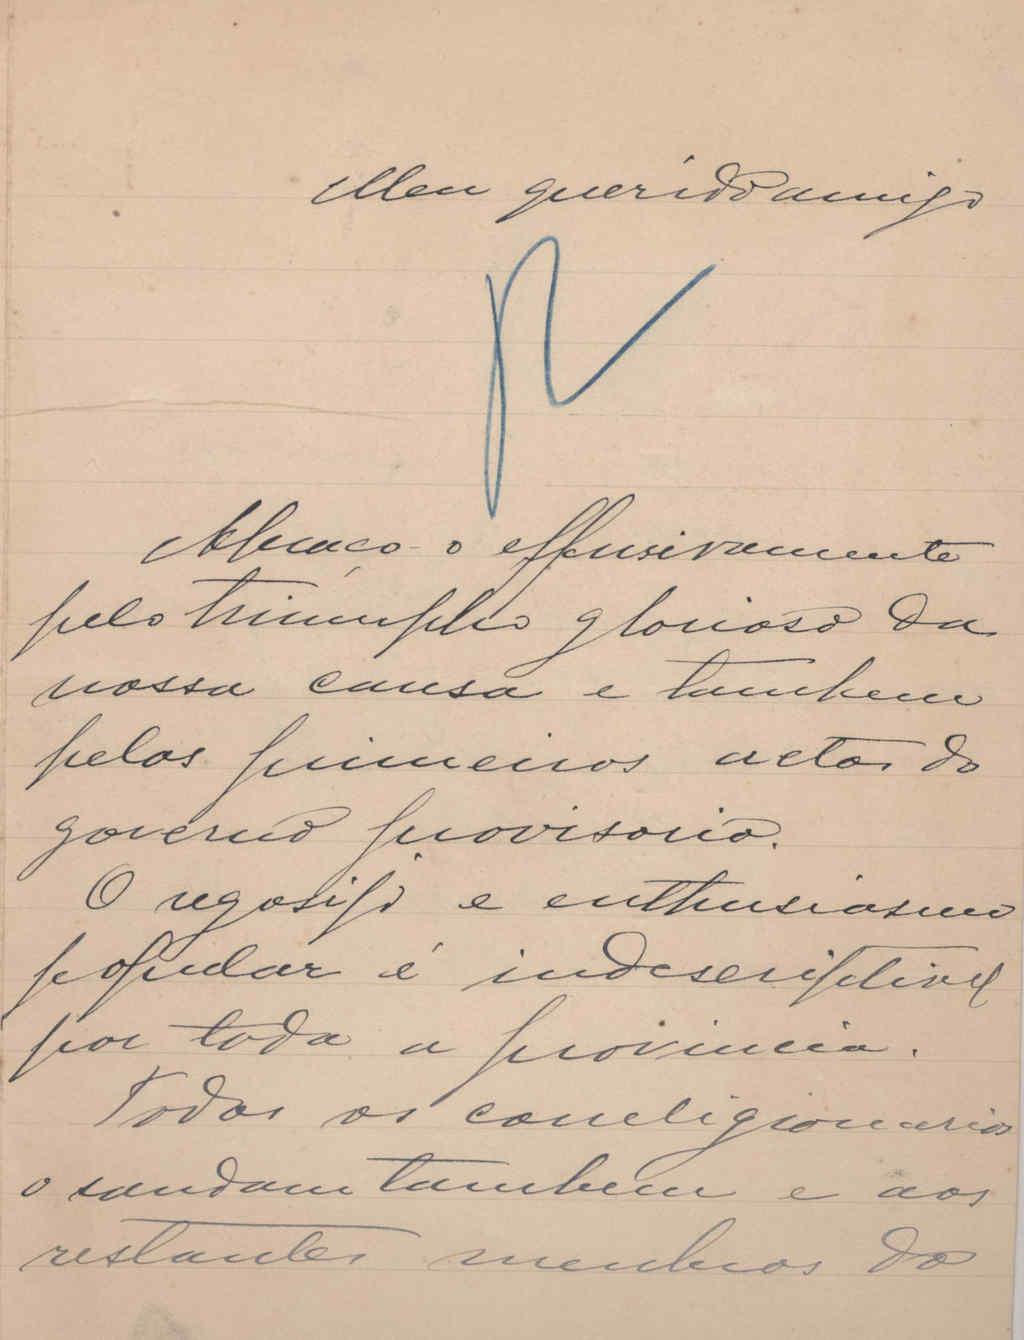 Meu querido amigo
R
Abraço-o effusivamente
pelo triumpho glorioso da
nossa causa e tambem
pelos primeiros actos do
governo provisorio.
O regosijo e enthusiasmo
popular é indescriptivel
por toda a provincia.
Todos os correligionarios
o saudam tambem e aos
restantes membros do